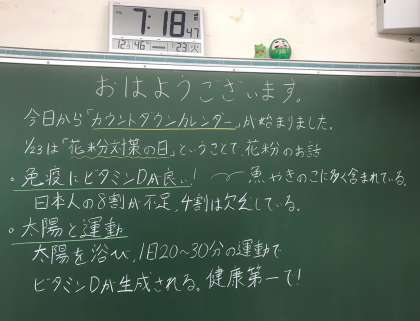 7:18 47
12.3 46 1 23 (火)
おはようございます。
今日から「カウントダウンカレンダー」が始まりました。
1/23は「花粉対策の日」ということで、花粉のお話
・免疫にビタミンDが良い! 魚やきのこに多く含まれている。
日本人の8割が不足,4割は欠乏している。
・太陽と運動
太陽を浴び、1日20~30分の運動で
ビタミンDが生成される。健康第一で!